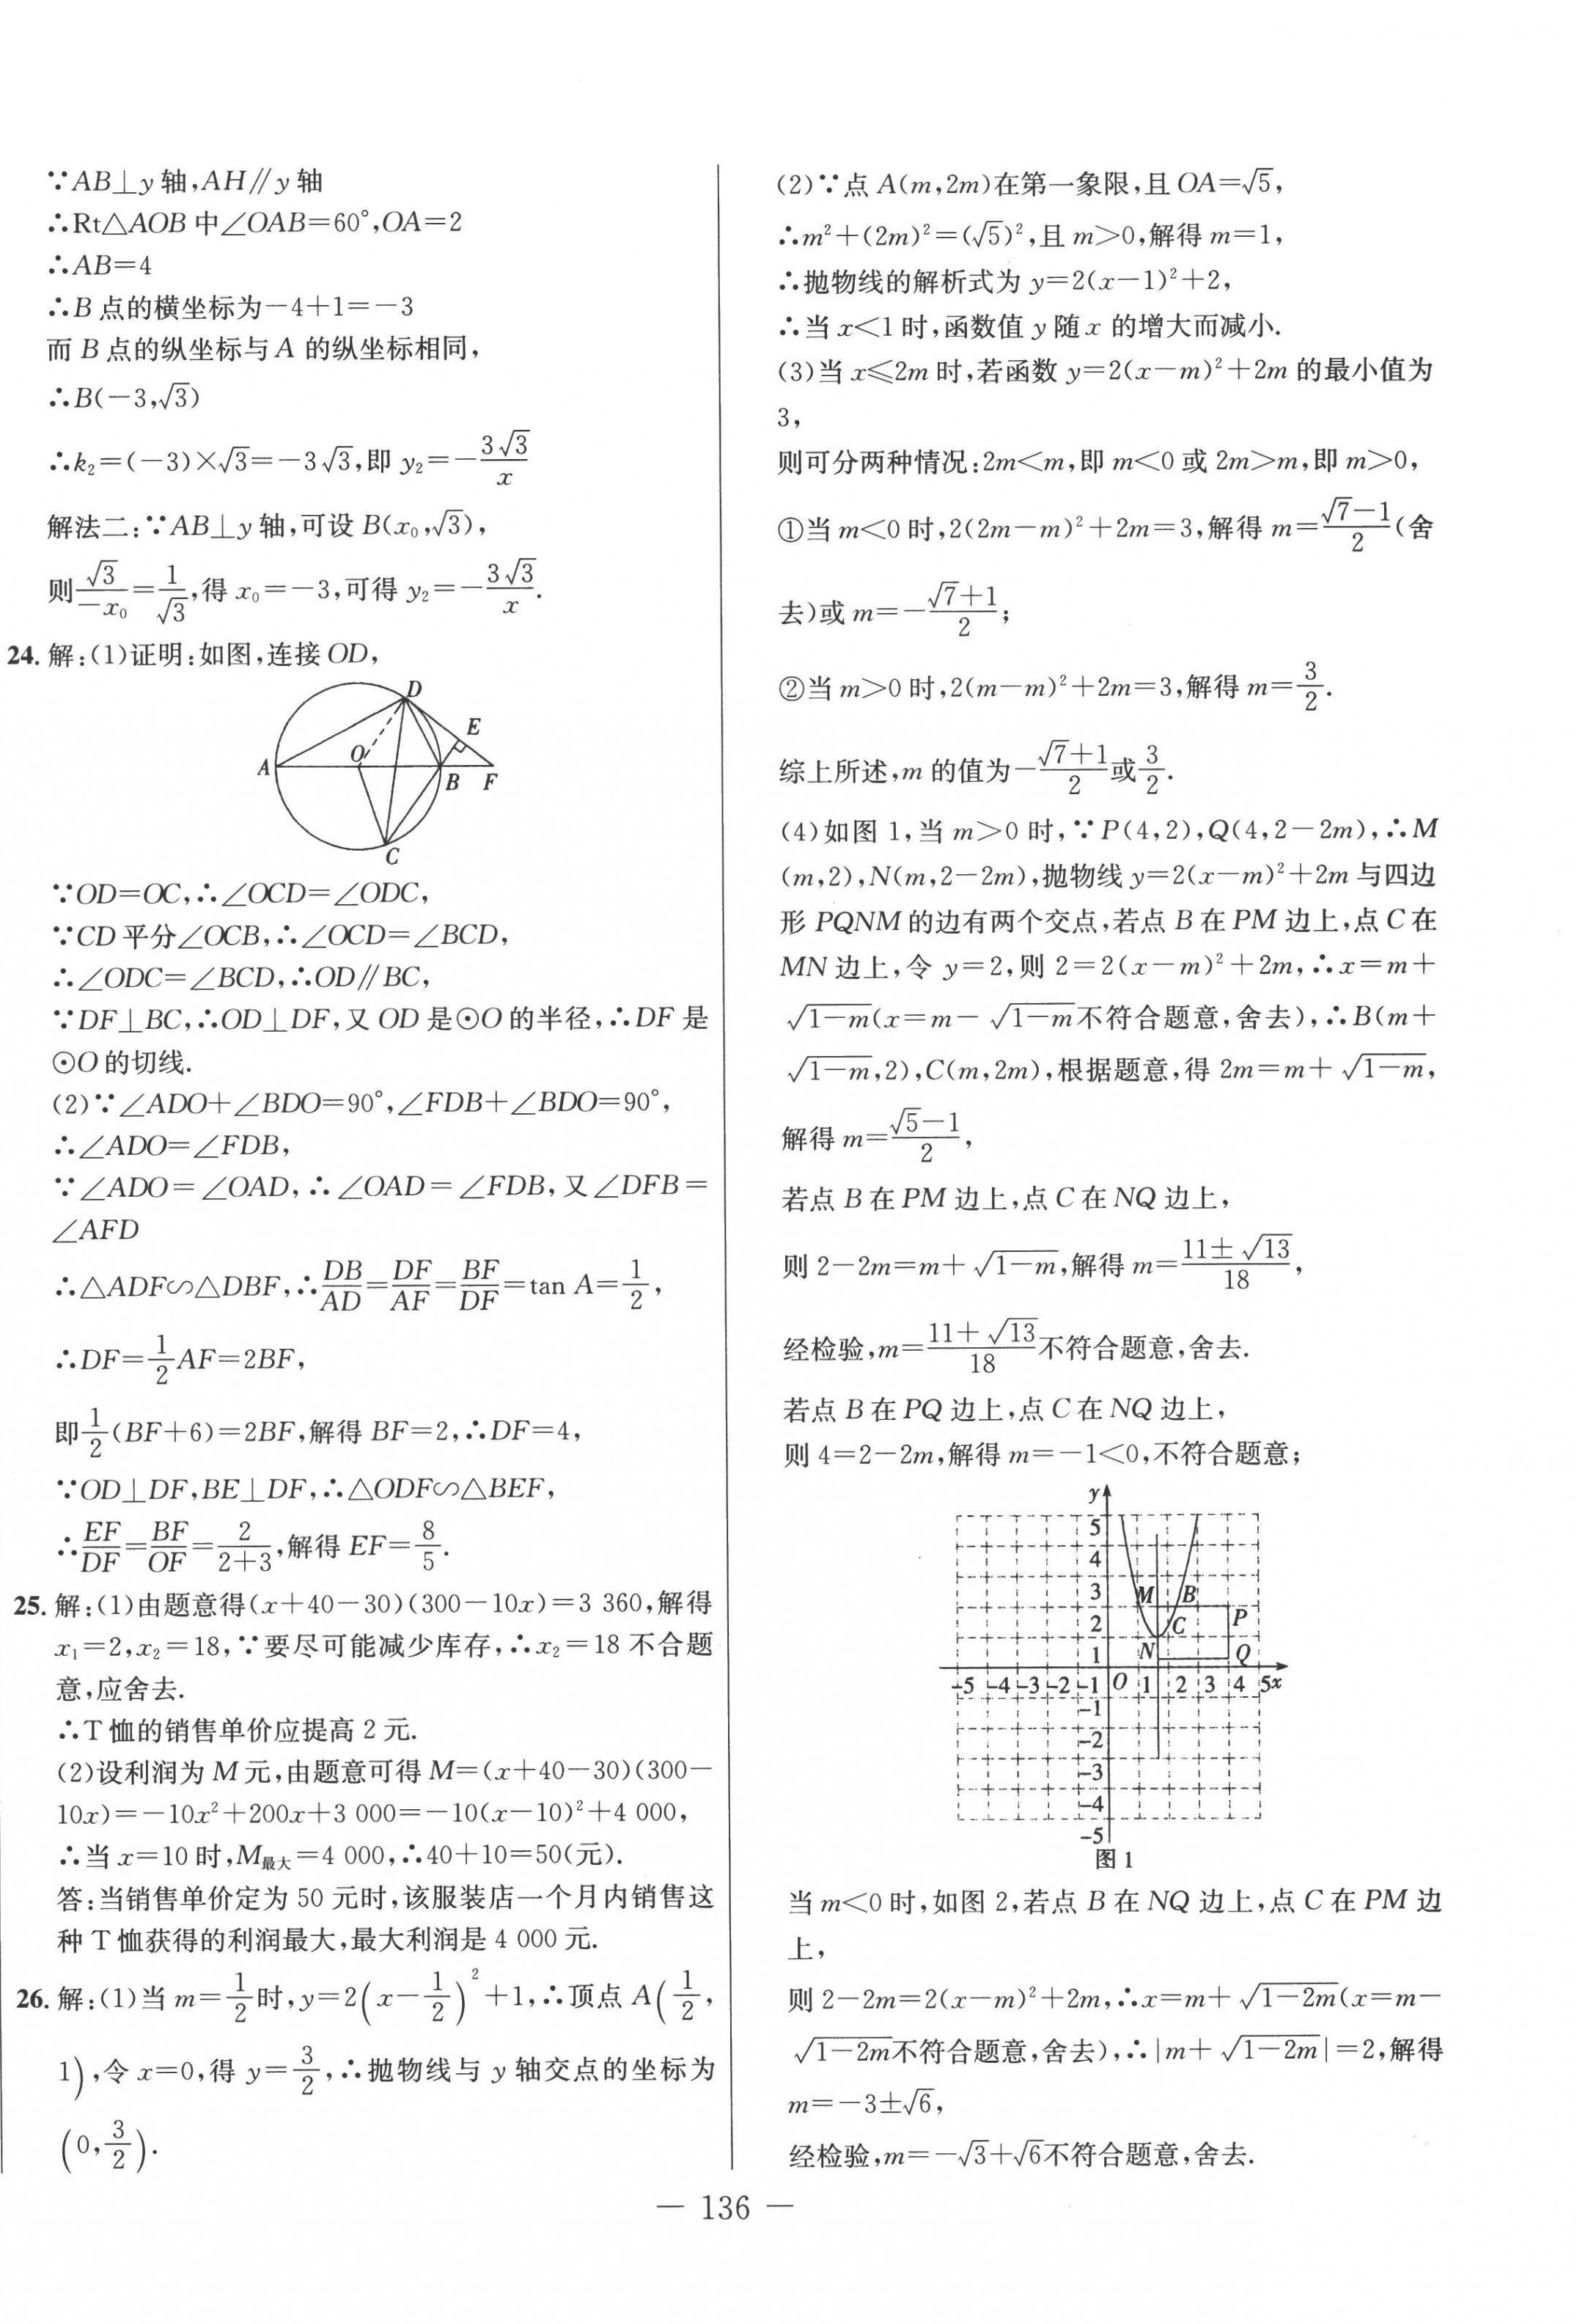 ∵AB⊥y轴,AH∥y轴
∴Rt△AOB中∠OAB=60°,OA=2
∴AB=4
∴B点的横坐标为-4+1=-3
而B点的纵坐标与A的纵坐标相同,
∴B(-3,√3)
∴k₂=(-3)×√3=-3√3,即 y₂=-3√3/x
解法二:∵AB⊥y轴,可设B(x₀,√3),
则√3/(-x₀)=1/√3,得 x₀=-3,可得 y₂=-3√3/x.
24. 解:(1)证明:如图,连接OD,
D
E
O
A
B
F
C
∵OD=OC,∴∠OCD=∠ODC,
∵CD平分∠OCB,∴∠OCD=∠BCD,
∴∠ODC=∠BCD,∴OD∥BC,
∵DF⊥BC,∴OD⊥DF,又OD是⊙O的半径,∴DF是
⊙O的切线.
(2)∵∠ADO+∠BDO=90°,∠FDB+∠BDO=90°,
∴∠ADO=∠FDB,
∵∠ADO=∠OAD,∴∠OAD=∠FDB,又∠DFB=
∠AFD
∴△ADF∽△DBF,∴DB/AD=DF/AF=BF/DF=tan A=1/2,
∴DF=1/2AF=2BF,
即1/2(BF+6)=2BF,解得BF=2,∴DF=4,
∵OD⊥DF,BE⊥DF,∴△ODF∽△BEF,
∴EF/DF=BF/OF=2/(2+3),解得EF=8/5.
25. 解:(1)由题意得(x+40-30)(300-10x)=3 360,解得
x₁=2,x₂=18,∵要尽可能减少库存,∴x₂=18不合题
意,应舍去.
∴T恤的销售单价应提高2元.
(2)设利润为M元,由题意可得M=(x+40-30)(300-
10x)=-10x²+200x+3 000=-10(x-10)²+4 000,
∴当x=10时,M最大=4 000,∴40+10=50(元).
答:当销售单价定为50元时,该服装店一个月内销售这
种T恤获得的利润最大,最大利润是4 000元.
26. 解:(1)当m=1/2时,y=2(x-1/2)²+1,∴顶点A(1/2,
1),令x=0,得y=3/2,∴抛物线与y轴交点的坐标为
(0,3/2).
(2)∵点A(m,2m)在第一象限,且OA=√5,
∴m²+(2m)²=(√5)²,且m>0,解得m=1,
∴抛物线的解析式为y=2(x-1)²+2,
∴当x<1时,函数值y随x的增大而减小.
(3)当x≤2m时,若函数y=2(x-m)²+2m的最小值为
3,
则可分两种情况:2m<m,即m<0或2m>m,即m>0,
①当m<0时,2(2m-m)²+2m=3,解得m=(√7-1)/2(舍
去)或m=-(√7+1)/2;
②当m>0时,2(m-m)²+2m=3,解得m=3/2.
综上所述,m的值为-(√7+1)/2或3/2.
(4)如图1,当m>0时,∵P(4,2),Q(4,2-2m),∴M
(m,2),N(m,2-2m),抛物线y=2(x-m)²+2m与四边
形PQNM的边有两个交点,若点B在PM边上,点C在
MN边上,令y=2,则2=2(x-m)²+2m,∴x=m+
√(1-m)(x=m-√(1-m)不符合题意,舍去),∴B(m+
√(1-m),2),C(m,2m),根据题意,得2m=m+√(1-m),
解得m=(√5-1)/2,
若点B在PM边上,点C在NQ边上,
则2-2m=m+√(1-m),解得m=(11±√13)/18,
经检验,m=(11+√13)/18不符合题意,舍去.
若点B在PQ边上,点C在NQ边上,
则4=2-2m,解得m=-1<0,不符合题意;
y
5
4
3 M B
2 C P
1 N Q
-5 -4 -3 -2 -1 O 1 2 3 4 5x
-1
-2
-3
-4
-5
图1
当m<0时,如图2,若点B在NQ边上,点C在PM边
上,
则2-2m=2(x-m)²+2m,∴x=m+√(1-2m)(x=m-
√(1-2m)不符合题意,舍去),∴|m+√(1-2m)|=2,解得
m=-3±√6,
经检验,m=-√3+√6不符合题意,舍去.
— 136 —